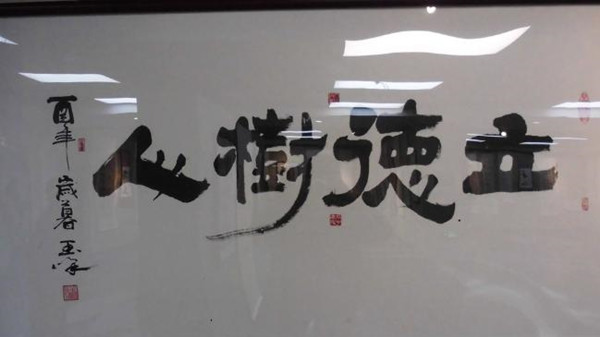 立德樹人
酉年歲暮玉